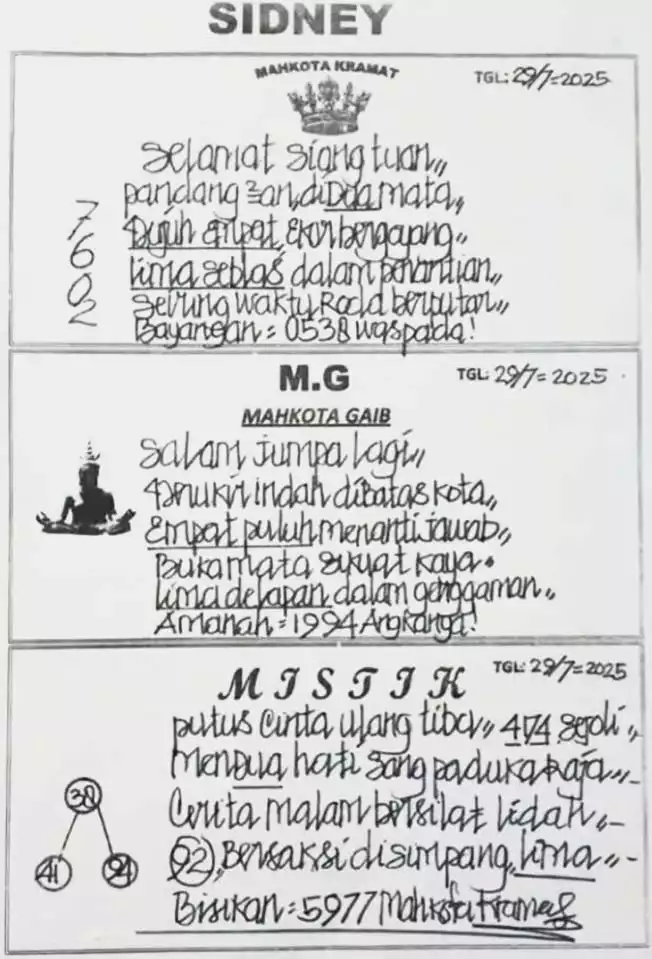 SIDNEY
MAHKOTA KRAMAT
TGL: 29/7=2025
Selamat Siang tuan,,
pandang 3an, di Dua mata,,
7
4ujuh empat, Ekor bergoyang,,
6
lima seblas dalam penantian,,
0
Seiring waktu Roda berputar,,
2
Bayangan = 0538 waspada!
M.G
TGL: 29/7=2025
MAHKOTA GAIB
Salam jumpa lagi,,
4erukir indah dibatas kota,,
Empat puluh menanti jawab,,
Buka mata kaya.
lima delapan dalam genggaman,,
Amanah = 1994 Angkanya!
MISTIK
TGL: 29/7=2025
putus Cinta ulang tiba,, 474
hati Sang paduka Raja,,-
38
Cerita malam bersilat lidah,,-
41
92, Bersaksi disimpang lima,,-
Bisikan = 5977 Mahkota Kramat